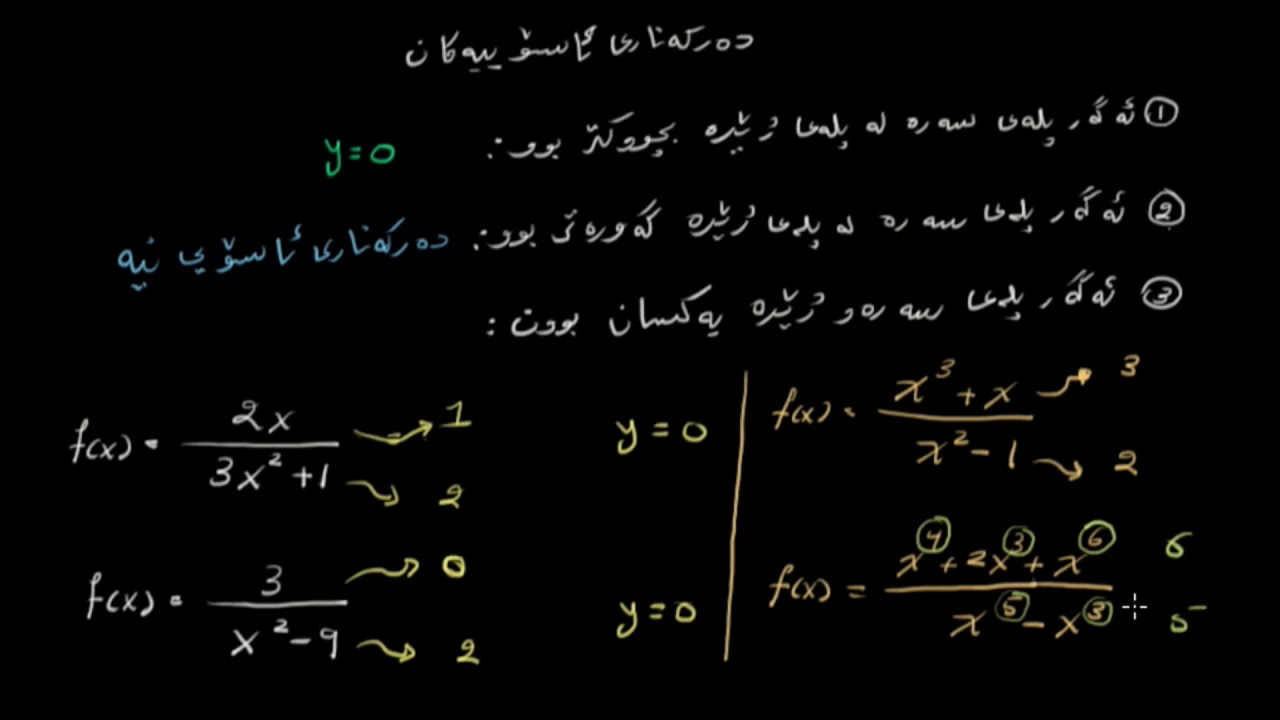 دەرکەناری ئاسۆییەکان
① ئەگەر پلەی سەرە لە پلەی ژێرە بچووکتر بوو:. y=0
② ئەگەر پلەی سەرە لە پلەی ژێرە گەورەتر بوو:. دەرکەناری ئاسۆیی نیە
③ ئەگەر پلەی سەرە و ژێرە یەکسان بوون :
f(x) = 2x / 3x² + 1 → 1 → 2 y = 0
f(x) = 3 / x² - 9 → 0 → 2 y = 0
f(x) = x³ + x / x² - 1 → 3 → 2
f(x) = x⁴ + 2x³ + x⁶ / x⁵ - x³ 6 5